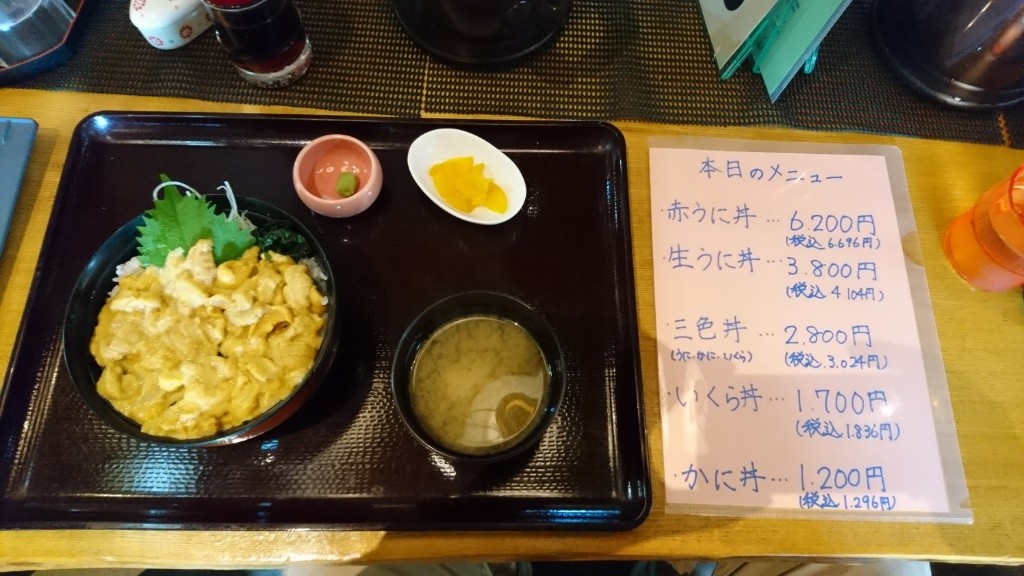 本日のメニュー
・赤うに丼…6.200円
(税込6.696円)
・生うに丼…3.800円
(税込4104円)
三色丼…2.800円
(うに・かに・いくら)
(税込.3.024円)
・いくら丼…1.700円
(税込1.836円)
・かに丼…1.200円
(税込1.296円)